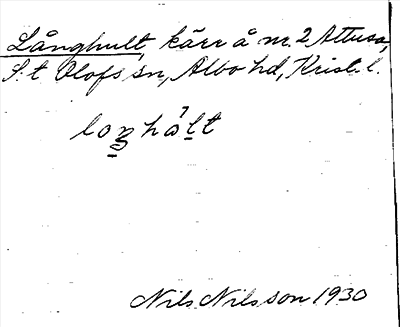 Långhult, kärr å nr. 2 Attusa,
S:t Olofs sn, Albo hd, Krist. l.
loŋhȧ́lt
Nils Nilsson 1930